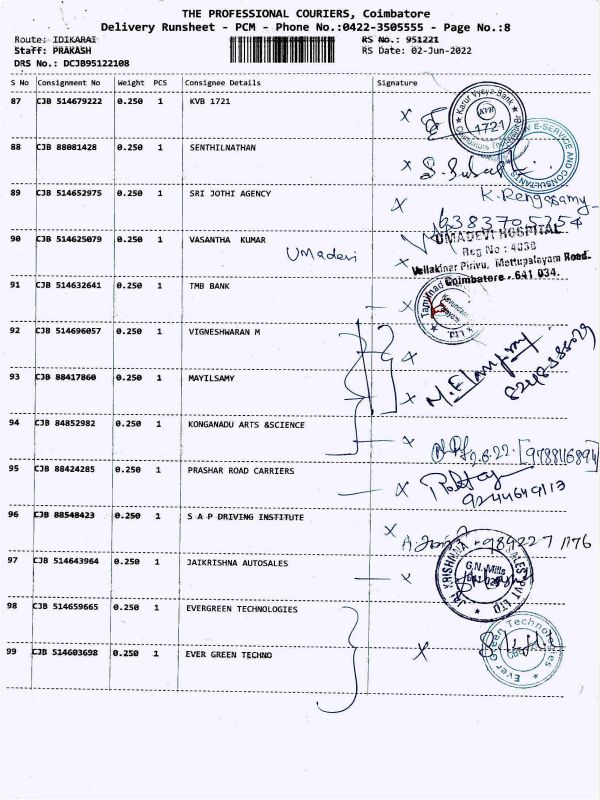 THE PROFESSIONAL COURIERS, Coimbatore
Delivery Runsheet - PCM - Phone No.:0422-3505555 - Page No.:8
Route: IDIKARAI RS No.: 951221
Staff: PRAKASH RS Date: 02-Jun-2022
DRS No.: DCJB95122108
S No Consignment No Weight PCS Consignee Details Signature
87 CJB 514679222 0.250 1 KVB 1721
Karur Vysya Bank
KVB
1721
88 CJB 88081428 0.250 1 SENTHILNATHAN
E-SERVICE AND CONSULTANTS
89 CJB 514652975 0.250 1 SRI JOTHI AGENCY
K. Rengasamy
9383705254
90 CJB 514625079 0.250 1 VASANTHA KUMAR
Umadevi
UMADEVI HOSPITAL
Reg No : 4038
Vellakinar Pirivu, Mettupalayam Road.
Coimbatore - 641 034.
91 CJB 514632641 0.250 1 TMB BANK
Tamilnad
92 CJB 514696057 0.250 1 VIGNESHWARAN M
93 CJB 88417860 0.250 1 MAYILSAMY
94 CJB 84852982 0.250 1 KONGANADU ARTS &SCIENCE
9788116894
95 CJB 88424285 0.250 1 PRASHAR ROAD CARRIERS
9244649113
96 CJB 88548423 0.250 1 S A P DRIVING INSTITUTE
989227 1176
97 CJB 514643964 0.250 1 JAIKRISHNA AUTOSALES
JAI KRISHNNA SALES PVT LTD
G.N. Mills
98 CJB 514659665 0.250 1 EVERGREEN TECHNOLOGIES
99 CJB 514603698 0.250 1 EVER GREEN TECHNO
Ever Green Technologies